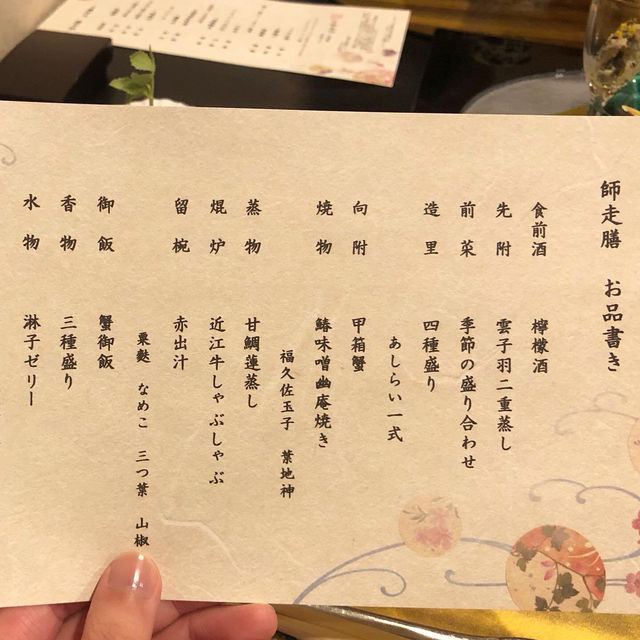 師走膳 お品書き
食前酒 檸檬酒
先附 雲子羽二重蒸し
前菜 季節の盛り合わせ
造里 四種盛り
あしらい一式
向附 甲箱蟹
焼物 鰆味噌幽庵焼き
福久佐玉子 葉地神
蒸物 甘鯛蓮蒸し
焜炉 近江牛しゃぶしゃぶ
留椀 赤出汁
粟麩 なめこ 三つ葉 山椒
御飯 蟹御飯
香物 三種盛り
水物 淋子ゼリー